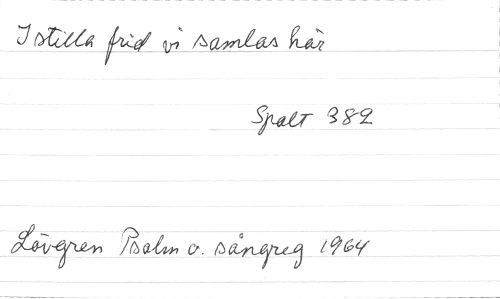 I stilla frid vi samlas här
Spalt 382
Lövgren Psalm o. sångreg 1964